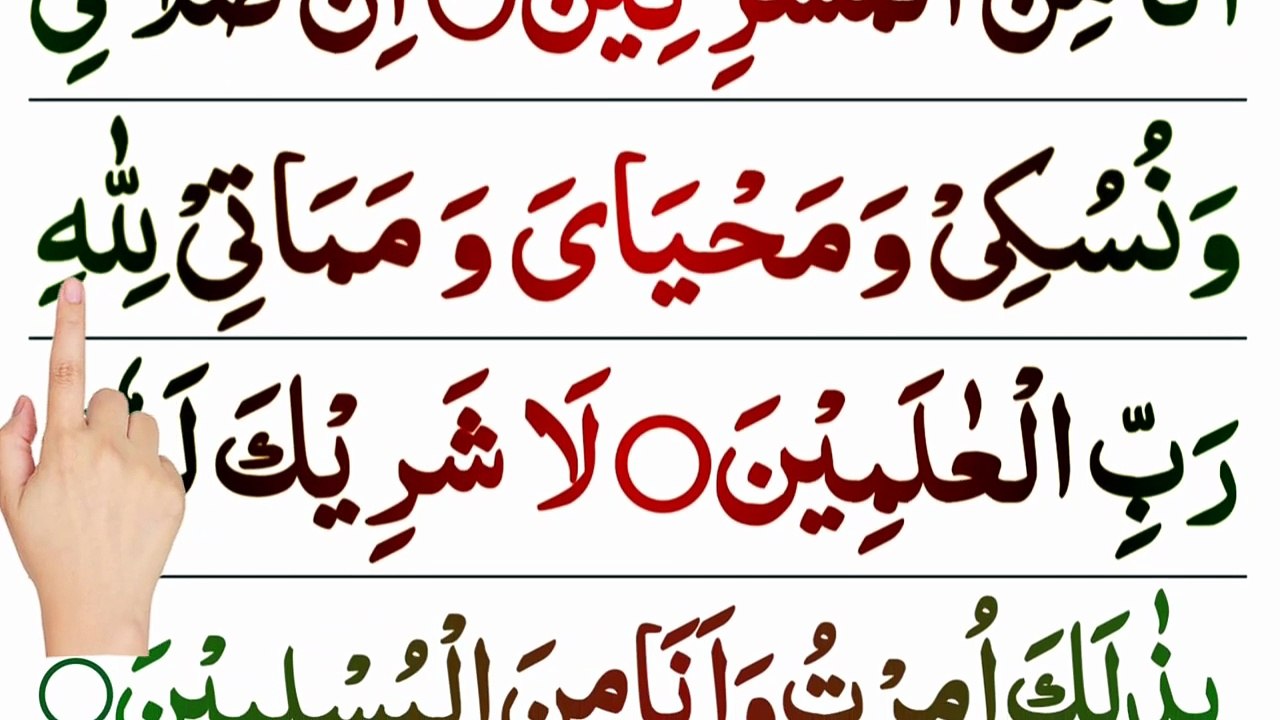 اَنَا مِنَ الْمُشْرِكِيْنَ○ اِنَّ صَلَاتِيْ
وَنُسُكِيْ وَمَحْيَايَ وَ مَمَاتِيْ لِلّٰهِ
رَبِّ الْعٰلَمِيْنَ○ لَا شَرِيْكَ لَهٗ
بِذٰلِكَ اُمِرْتُ وَاَنَا مِنَ الْمُسْلِمِيْنَ○